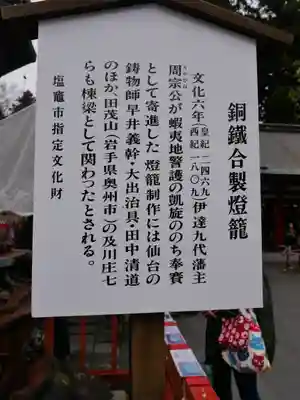 銅鐵合製燈籠
文化六年(皇紀 二四六九 西紀 一八〇九)伊達九代藩主
周宗公が蝦夷地警護の凱旋ののち奉賽
として寄進した 燈籠制作には仙台の
鋳物師早井義幹・大出治具・田中清道
のほか、田茂山(岩手県奥州市)の及川庄七
らも棟梁として関わったとされる。
塩竈市指定文化財